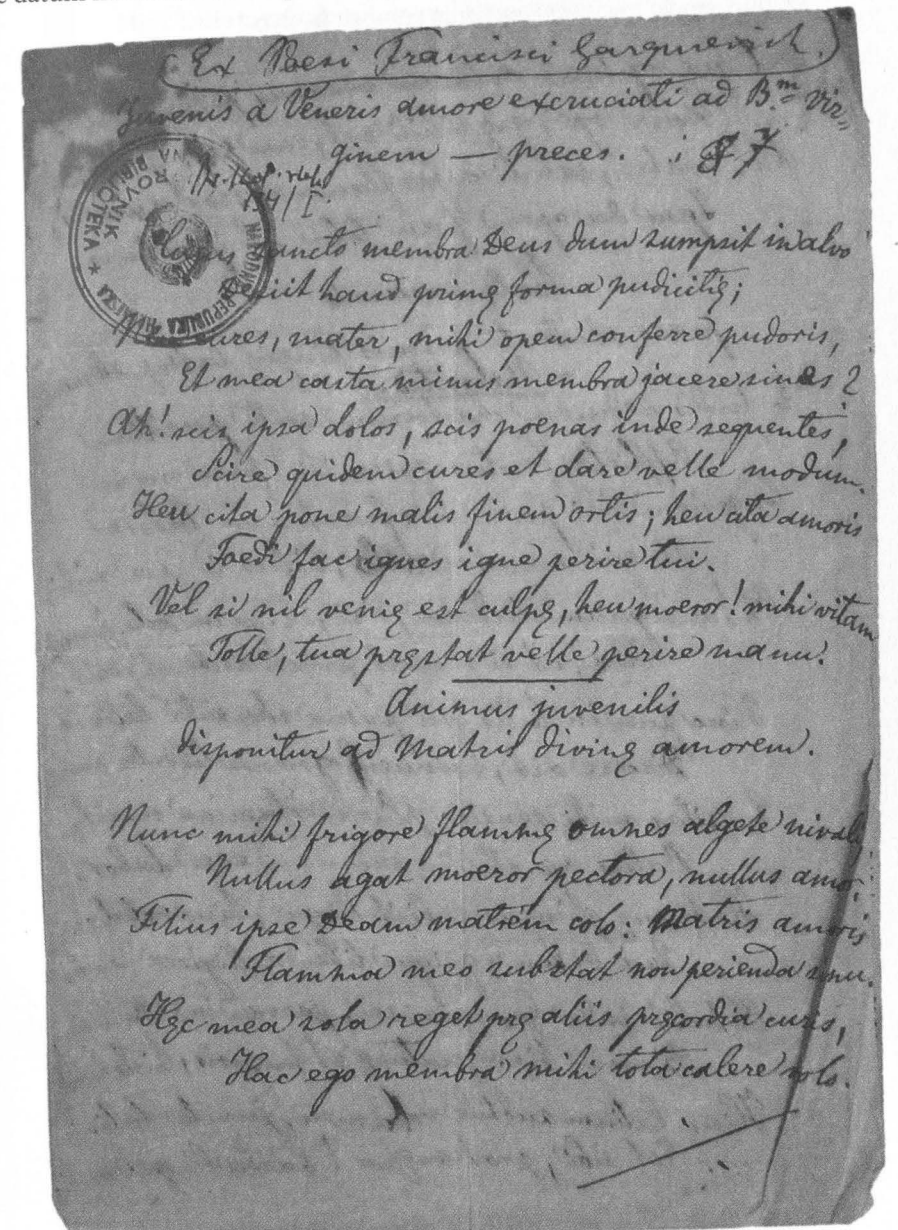 (Ex Poesi Francisci Gargurevich.)
Juvenis a Veneris amore excruciati ad B.m Vir„
ginem — preces. 7
NARODNA REPUBLIKA HRVATSKA
ROVNIK
NA BIBLIOTEKA
sancto membra Deus dum sumpsit in alvo
haud primę forma pudicitię;
cures, mater, mihi opem conferre pudoris,
Et mea casta minus membra jacere sines?
Ah! scis ipsa dolos, scis poenas inde sequentes,
Scire quidem cures et dare velle modum.
Heu cita pone malis finem ortis; heu cita amoris
Foedi fac ignes igne perire tui.
Vel si nil venię est culpę, heu moeror! mihi vitam
Tolle, tua pręstat velle perire manu.
Animus juvenilis
disponitur ad Matris divinę amorem.
Nunc mihi frigore flammę omnes algete nivali,
Nullus agat moeror pectora, nullus amor.
Filius ipse Deam matrem colo: Matris amoris
Flamma meo substat non perienda sinu.
Hęc mea sola reget prę aliis pręcordia curis,
Hac ego membra mihi tota calere volo.